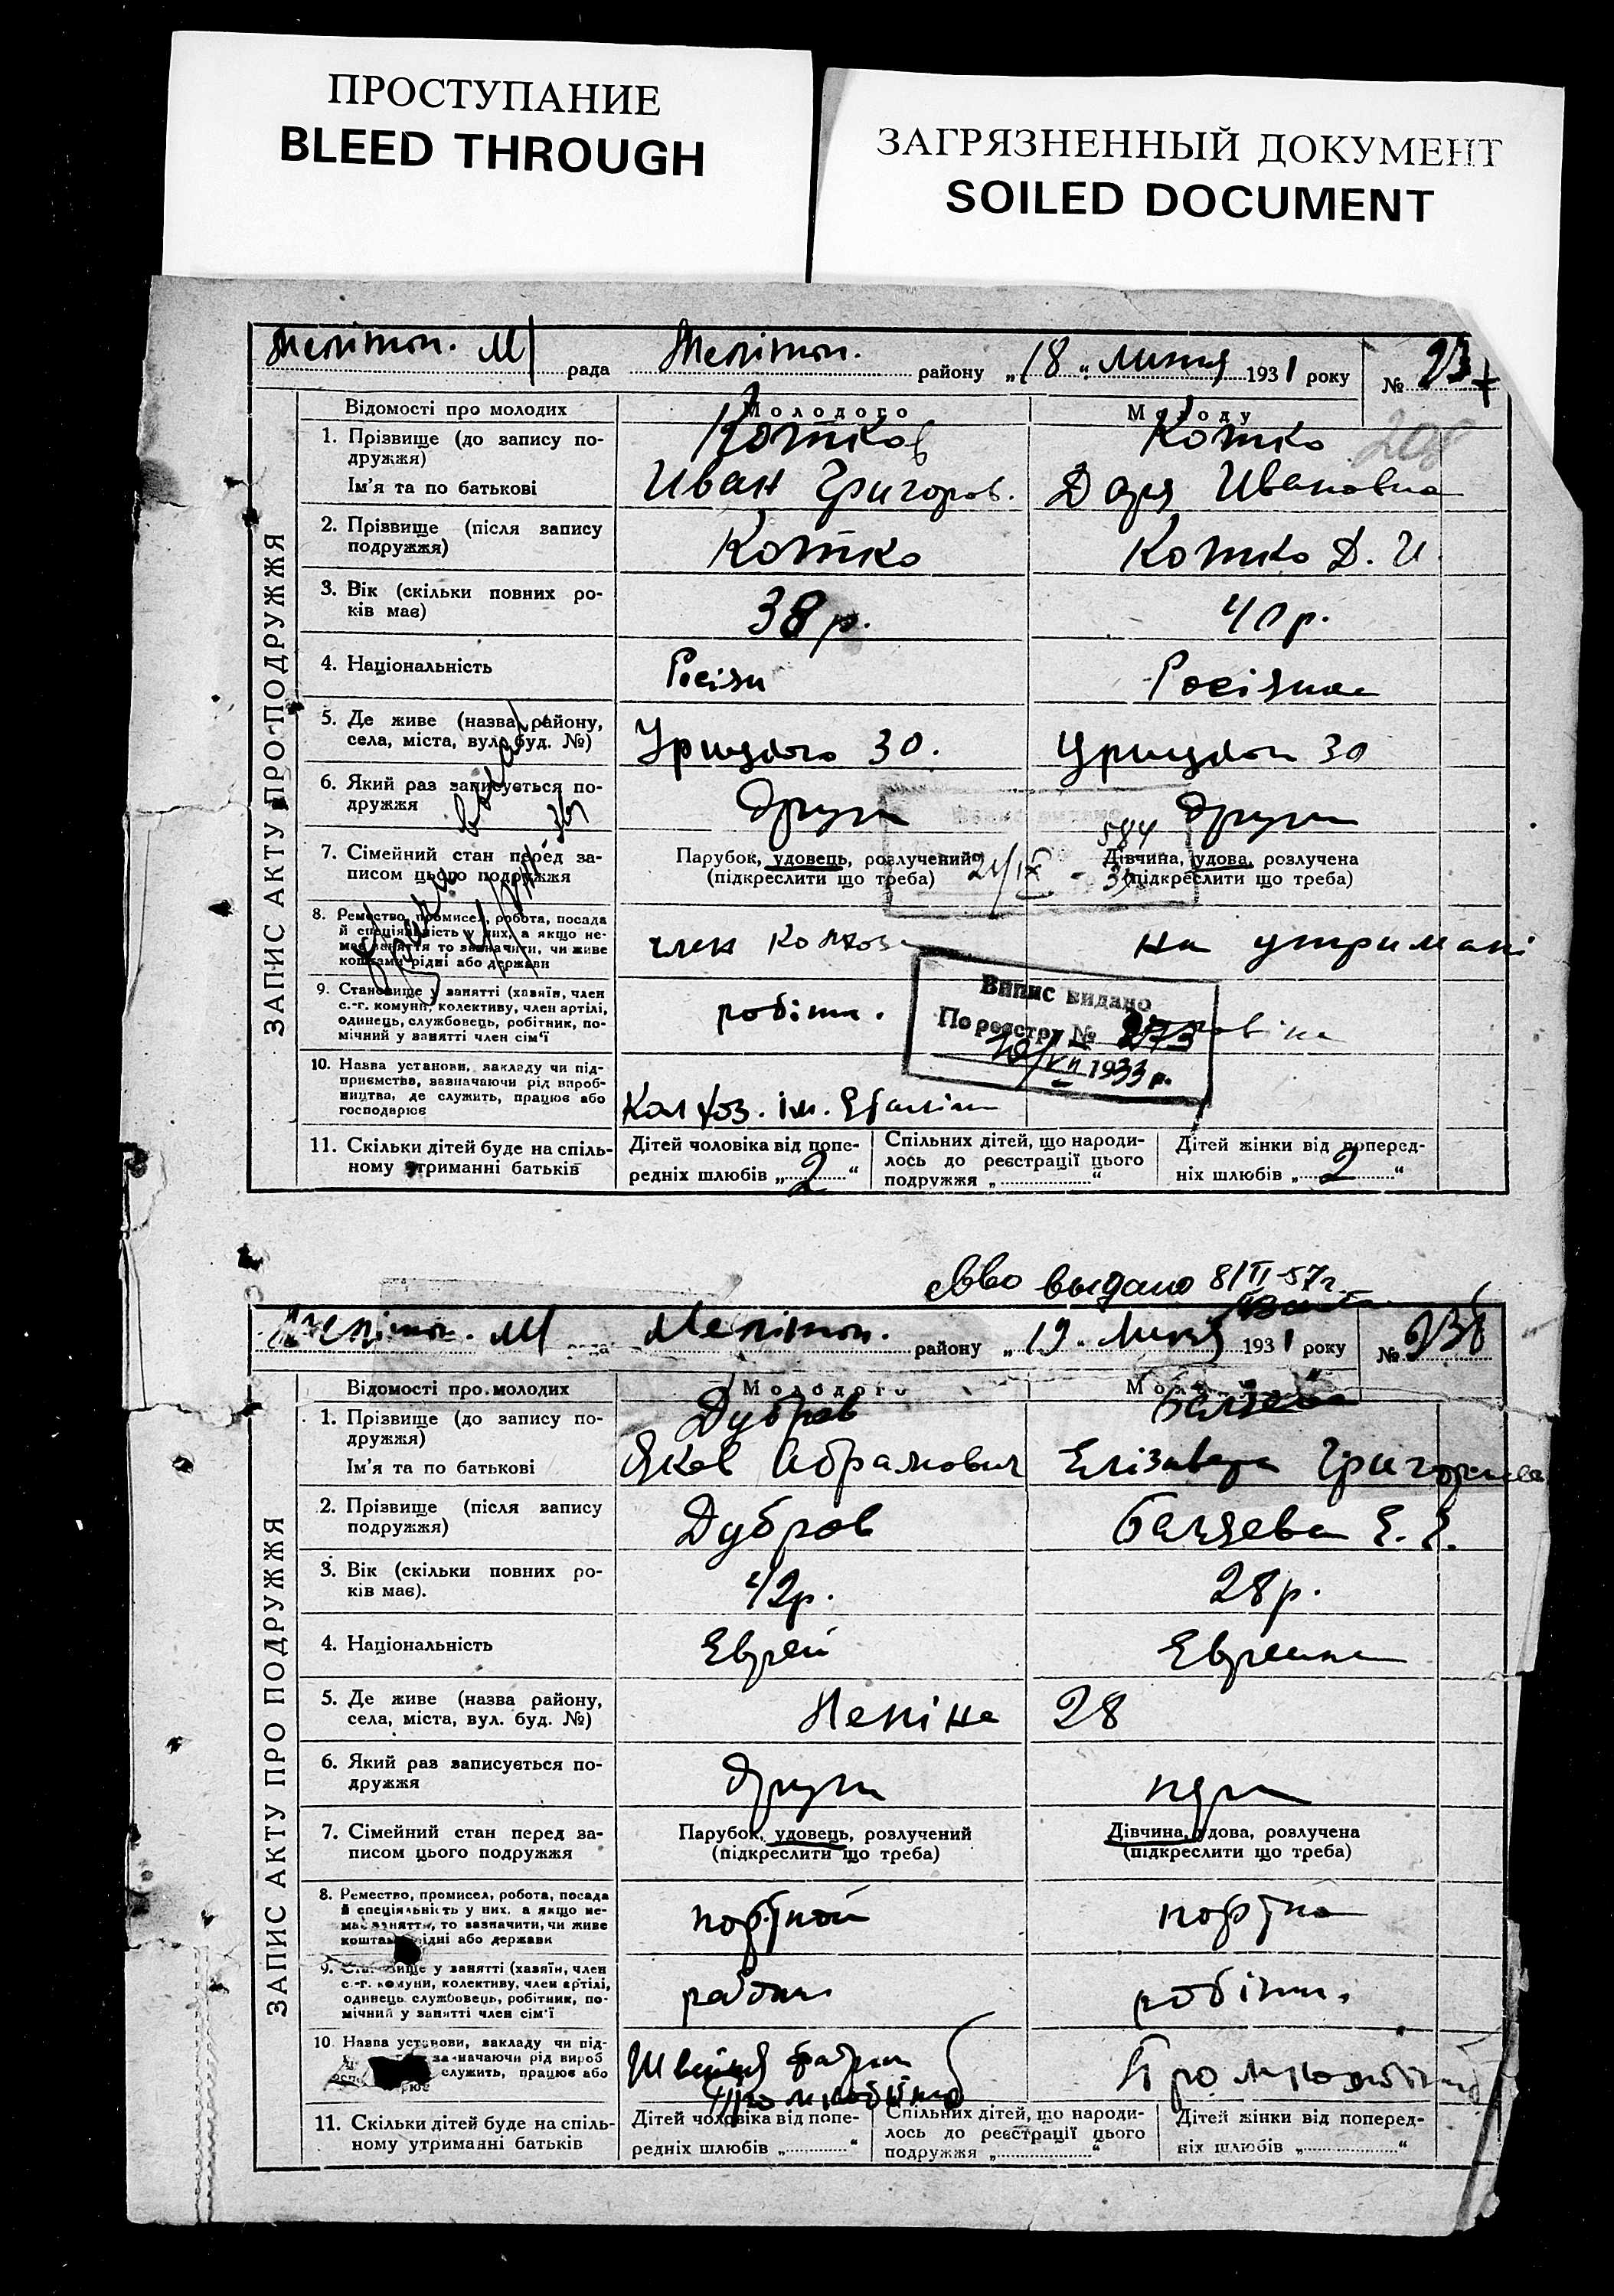 ПРОСТУПАНИЕ
BLEED THROUGH
ЗАГРЯЗНЕННЫЙ ДОКУМЕНТ
SOILED DOCUMENT
Мелітоп. М рада Мелітоп. району „18 “ липня 1931 року №
ЗАПИС АКТУ ПРО ПОДРУЖЖЯ
Відомості про молодих
Молодого
Молоду
208
1. Прізвище (до запису по-
дружжя)
Ім'я та по батькові
Котков
Иван Григоров.
Котко
Даря Ивановна
2. Прізвище (після запису
подружжя)
Котко
Котко Д. И.
3. Вік (скільки повних ро-
ків має)
38 р.
40 р.
4. Національність
Росіян
Росіянка
5. Де живе (назва району,
села, міста, вул. буд. №)
Урицкого 30.
Урицког 30
6. Який раз записується по-
дружжя
други
други
584
7. Сімейний стан перед за-
писом цього подружжя
Парубок, удовець, розлучений
(підкреслити що треба)
Дівчина, удова, розлучена
(підкреслити що треба)
8. Ремество, промисел, робота, посада
й спеціяльність у них, а якщо не-
має заняття то зазначити, чи живе
коштами рідні або держави
член колхоз
на утримані
9. Становище у занятті (хазяїн, член
с.-г. комуни, колективу, член артілі,
одинець, службовець, робітник, по-
мічний у занятті член сім'ї
робітн.
Випис видано
По реєстру № 273
1933 р.
10. Назва установи, закладу чи під-
приємства, зазначаючи рід вироб-
ництва, де служить, працює або
господарює
Колхоз. ім. Сталін
11. Скільки дітей буде на спіль-
ному утриманні батьків
Дітей чоловіка від попе-
редніх шлюбів „ 2 “
Спільних дітей, що народи-
лось до реєстрації цього
подружжя „ “
Дітей жінки від поперед-
ніх шлюбів „ 2 “
выдано 8/II-57г.
Мелітоп. М рада Мелітоп. району „19 “ липня 1931 року № 238
ЗАПИС АКТУ ПРО ПОДРУЖЖЯ
Відомості про молодих
Молодого
1. Прізвище (до запису по-
дружжя)
Ім'я та по батькові
Дубров
Яков Абрамович
Елізавета Григорьевна
2. Прізвище (після запису
подружжя)
Дубров
3. Вік (скільки повних ро-
ків має).
42р.
28р.
4. Національність
Еврей
Еврейка
5. Де живе (назва району,
села, міста, вул. буд. №)
Леніна 28
6. Який раз записується по-
дружжя
други
7. Сімейний стан перед за-
писом цього подружжя
Парубок, удовець, розлучений
(підкреслити що треба)
Дівчина, удова, розлучена
(підкреслити що треба)
8. Ремество, промисел, робота, посада
й спеціяльність у них, а якщо не-
має заняття, то зазначити, чи живе
коштами рідні або держави
портной
портна
9. Становище у занятті (хазяїн, член
с.-г. комуни, колективу, член артілі,
одинець, службовець, робітник, по-
мічний у занятті член сім'ї
робітн.
10. Назва установи, закладу чи під-
зазначаючи рід вироб
служить, працює або
11. Скільки дітей буде на спіль-
ному утриманні батьків
Дітей чоловіка від попе-
редніх шлюбів „ “
Спільних дітей, що народи-
лось до реєстрації цього
подружжя „ “
Дітей жінки від поперед-
ніх шлюбів „ “